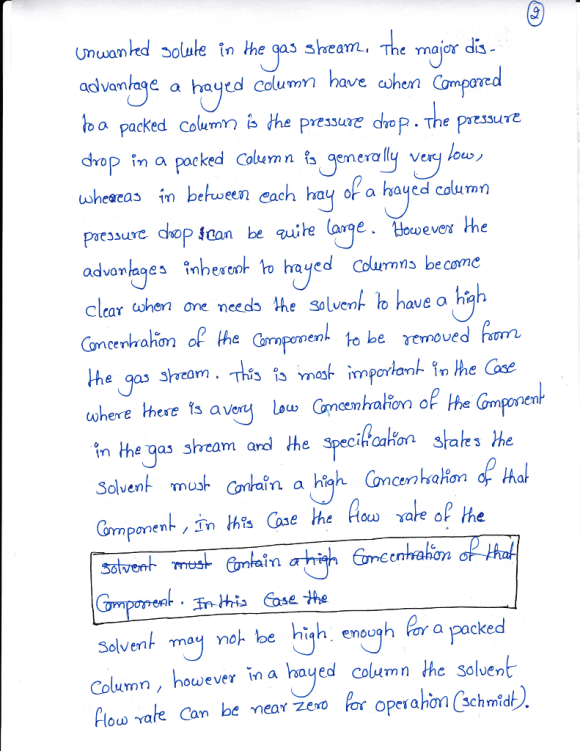 2
unwanted solute in the gas stream. The major dis-
advantage a trayed column have when Compared
to a packed column is the pressure drop. The pressure
drop in a packed column is generally very low,
whereas in between each tray of a trayed column
pressure drop can be quite large. However the
advantages inherent to trayed columns become
clear when one needs the solvent to have a high
Concentration of the Component to be removed from
the gas stream. This is most important in the Case
where there is a very Low Concentration of the Component
in the gas stream and the specification states the
Solvent must contain a high Concentration of that
Component, In this Case the flow rate of the
solvent must Contain a high Concentration of that
Component. In this Case the
solvent may not be high enough for a packed
column, however in a trayed column the solvent
flow rate can be near zero for operation (schmidt).